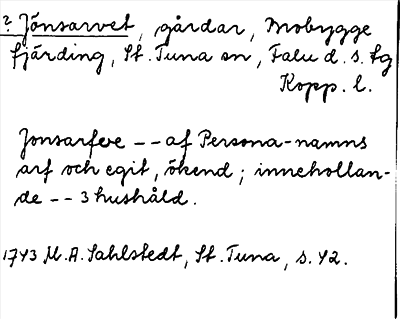 ? Jönsarvet, gårdar, Mobygge
fjärding, St. Tuna sn, Falu d. s. fg
Kopp. l.
Jonsarfve -- af Persona-namns
arf och egit, ökend; innehollan-
de -- 3 hushåld.
1743 M. A. Sahlstedt, St. Tuna, s. 42.